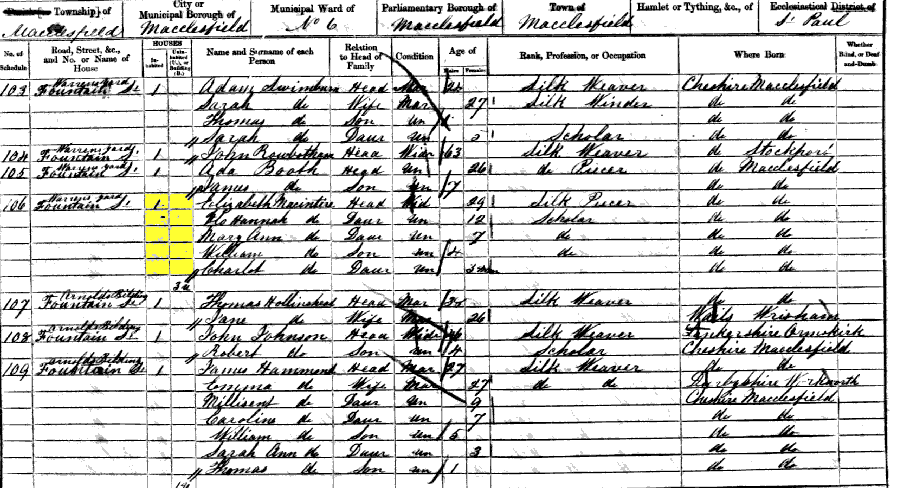 Parish [or Township] of
Macclesfield
City or
Municipal Borough of
Macclesfield
Municipal Ward of
No 6
Parliamentary Borough of
Macclesfield
Town of
Macclesfield
Hamlet or Tything, &c., of
Ecclesiastical District of
St Paul
No. of Schedule Road, Street, &c., and No. or Name of House HOUSES Inhabited Uninhabited (U.), or Building (B.) Name and Surname of each Person Relation to Head of Family Condition Age of Males Females Rank, Profession, or Occupation Where Born Whether Blind, or Deaf-and-Dumb
103 Warrens yard Fountain St 1 Adam Head Mar Silk Weaver Cheshire Macclesfield
Sarah do Wife Mar 27 Silk Winder do do
Thomas do Son Un do do
Sarah do Daur Un Scholar do do
104 Warrens yard Fountain St 1 John Head Widr 63 Silk Weaver do Stockport
105 Warrens yard Fountain St 1 Ada Booth Head Un 26 do Piecer do Macclesfield
James do Son Un 7 do do
106 Warrens yard Fountain St 1 Elizabeth Macintire Head Wid 29 Silk Piecer do do
Hannah do Daur Un 12 Scholar do do
Mary Ann do Daur Un 7 do do do
William do Son Un 4 do do do
Charlot do Daur Un do do
107 Arnolds Fountain St 1 Thomas Head Mar Silk Weaver do do
Jane do Wife Mar 26
108 Arnolds Fountain St 1 John Johnson Head Widr Silk Weaver Ormskirk
Robert do Son Un 4 Scholar Cheshire Macclesfield
109 Arnolds Fountain St 1 James Hammond Head Mar 27 Silk Weaver do do
Emma do Wife Mar 27 do do Derbyshire
Millisent do Daur Un 9 Cheshire Macclesfield
Caroline do Daur Un 7 do do
William do Son Un 5 do do
Sarah Ann do Daur Un 3 do do
Thomas do Son Un 1 do do